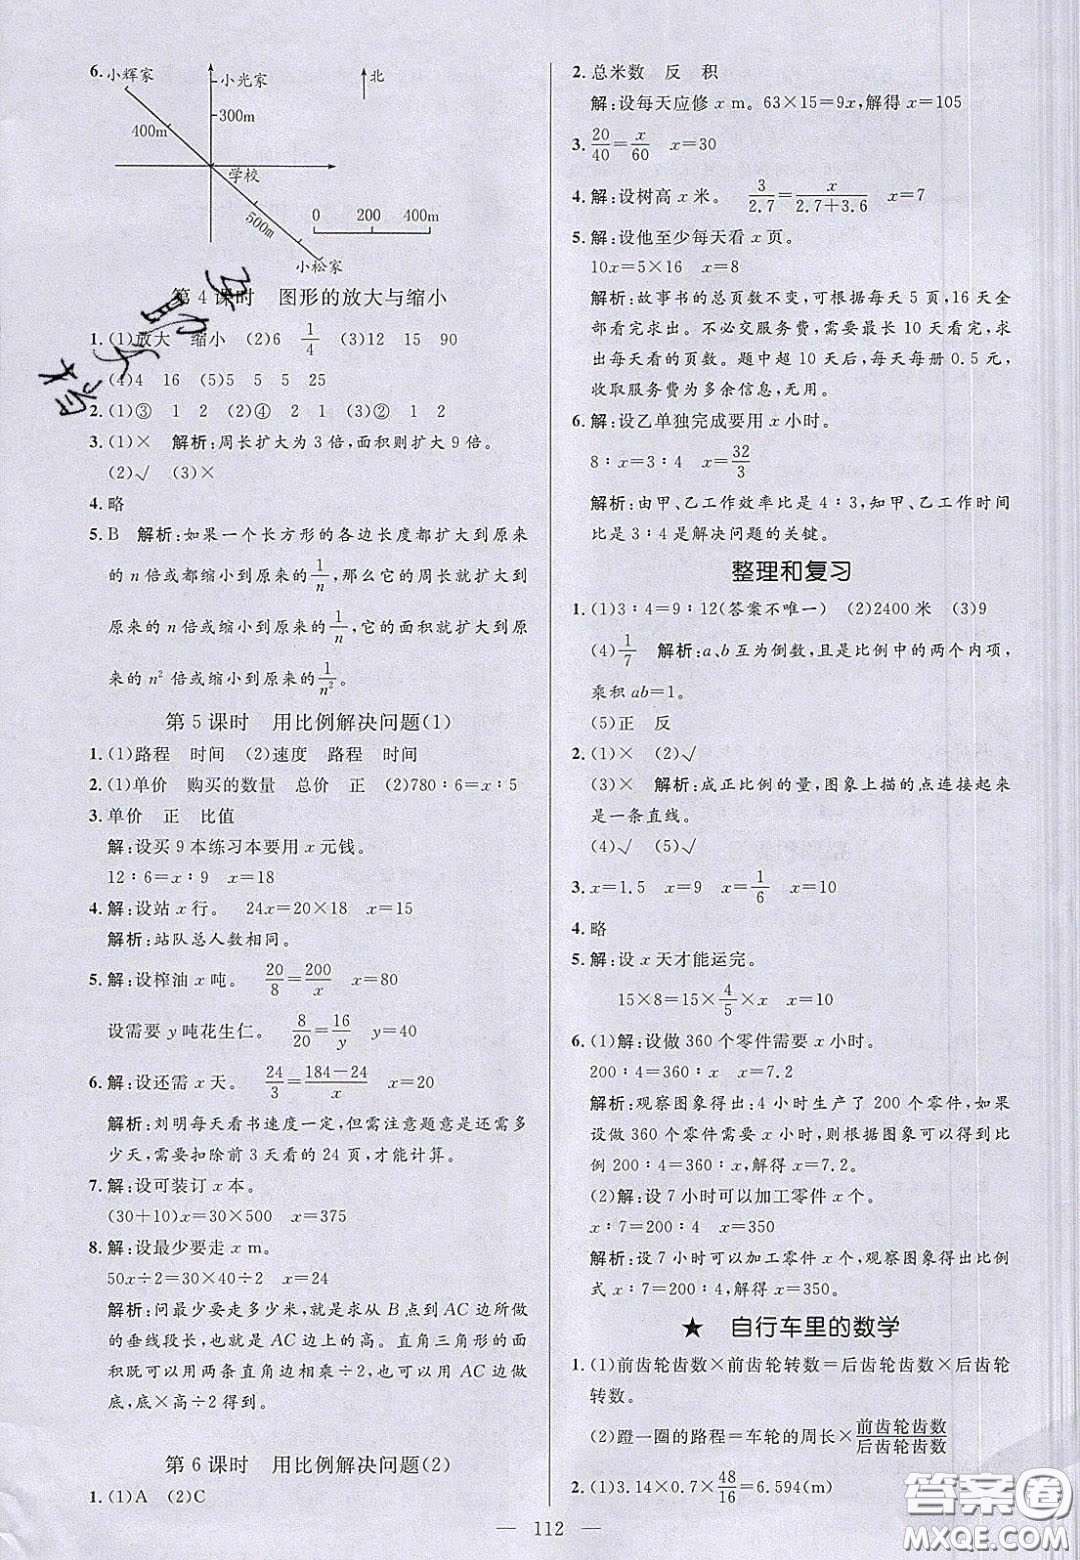 6.
小辉家
小光家
北
300m
400m
学校
500m
0 200 400m
小松家
第4课时 图形的放大与缩小
1.(1)放大 缩小 (2)6 1/4 (3)12 15 90
(4)4 16 (5)5 5 25
2.(1)③ 1 2 (2)④ 2 1 (3)② 1 2
3.(1)× 解析:周长扩大为3倍,面积则扩大9倍。
(2)√ (3)×
4.略
5.B 解析:如果一个长方形的各边长度都扩大到原来
的n倍或都缩小到原来的1/n,那么它的周长就扩大到
原来的n倍或缩小到原来的1/n,它的面积就扩大到原
来的n²倍或缩小到原来的1/n²。
第5课时 用比例解决问题(1)
1.(1)路程 时间 (2)速度 路程 时间
2.(1)单价 购买的数量 总价 正 (2)780∶6=x∶5
3.单价 正 比值
解:设买9本练习本要用x元钱。
12∶6=x∶9 x=18
4.解:设站x行。 24x=20×18 x=15
解析:站队总人数相同。
5.解:设榨油x吨。 20/8=200/x x=80
设需要y吨花生仁。 8/20=16/y y=40
6.解:设还需x天。 24/3=(184-24)/x x=20
解析:刘明每天看书速度一定,但需注意题意是还需多
少天,需要扣除前3天看的24页,才能计算。
7.解:设可装订x本。
(30+10)x=30×500 x=375
8.解:设最少要走x m。
50x÷2=30×40÷2 x=24
解析:问最少要走多少米,就是求从B点到AC边所做
的垂线段长,也就是AC边上的高。直角三角形的面
积既可以用两条直角边相乘÷2,也可以用AC边做
底,底×高÷2得到。
第6课时 用比例解决问题(2)
1.(1)A (2)C
2.总米数 反 积
解:设每天应修x m。63×15=9x,解得x=105
3.20/40=x/60 x=30
4.解:设树高x米。 3/2.7=x/(2.7+3.6) x=7
5.解:设他至少每天看x页。
10x=5×16 x=8
解析:故事书的总页数不变,可根据每天5页,16天
全部看完求出。不必交服务费,需要最长10天看完,求
出每天看的页数。题中超10天后,每天每册0.5元,
收取服务费为多余信息,无用。
6.解:设乙单独完成要用x小时。
8∶x=3∶4 x=32/3
解析:由甲、乙工作效率比是4∶3,知甲、乙工作时间
比是3∶4是解决问题的关键。
整理和复习
1.(1)3∶4=9∶12(答案不唯一) (2)2400米 (3)9
(4)1/7 解析:a、b互为倒数,且是比例中的两个内项,
乘积ab=1。
(5)正 反
2.(1)× (2)√
(3)× 解析:成正比例的量,图象上描的点连接起来
是一条直线。
(4)√ (5)√
3.x=1.5 x=9 x=1/6 x=10
4.略
5.解:设x天才能运完。
15×8=15×4/5×x x=10
6.(1)解:设做360个零件需要x小时。
200∶4=360∶x x=7.2
解析:观察图象得出:4小时生产了200个零件,如果
设做360个零件需要x小时,则根据图象可以得到比
例200∶4=360∶x,解得x=7.2。
(2)解:设7小时可以加工零件x个。
x∶7=200∶4 x=350
解析:设7小时可以加工零件x个,观察图象得出比例
式x∶7=200∶4,解得x=350。
★ 自行车里的数学
1.(1)前齿轮齿数×前齿轮转数=后齿轮齿数×后齿轮
转数。
(2)蹬一圈的路程=车轮的周长×前齿轮齿数/后齿轮齿数
2.(1)3.14×0.7×48/16=6.594(m)
— 112 —
答案圈
MXQE.COM